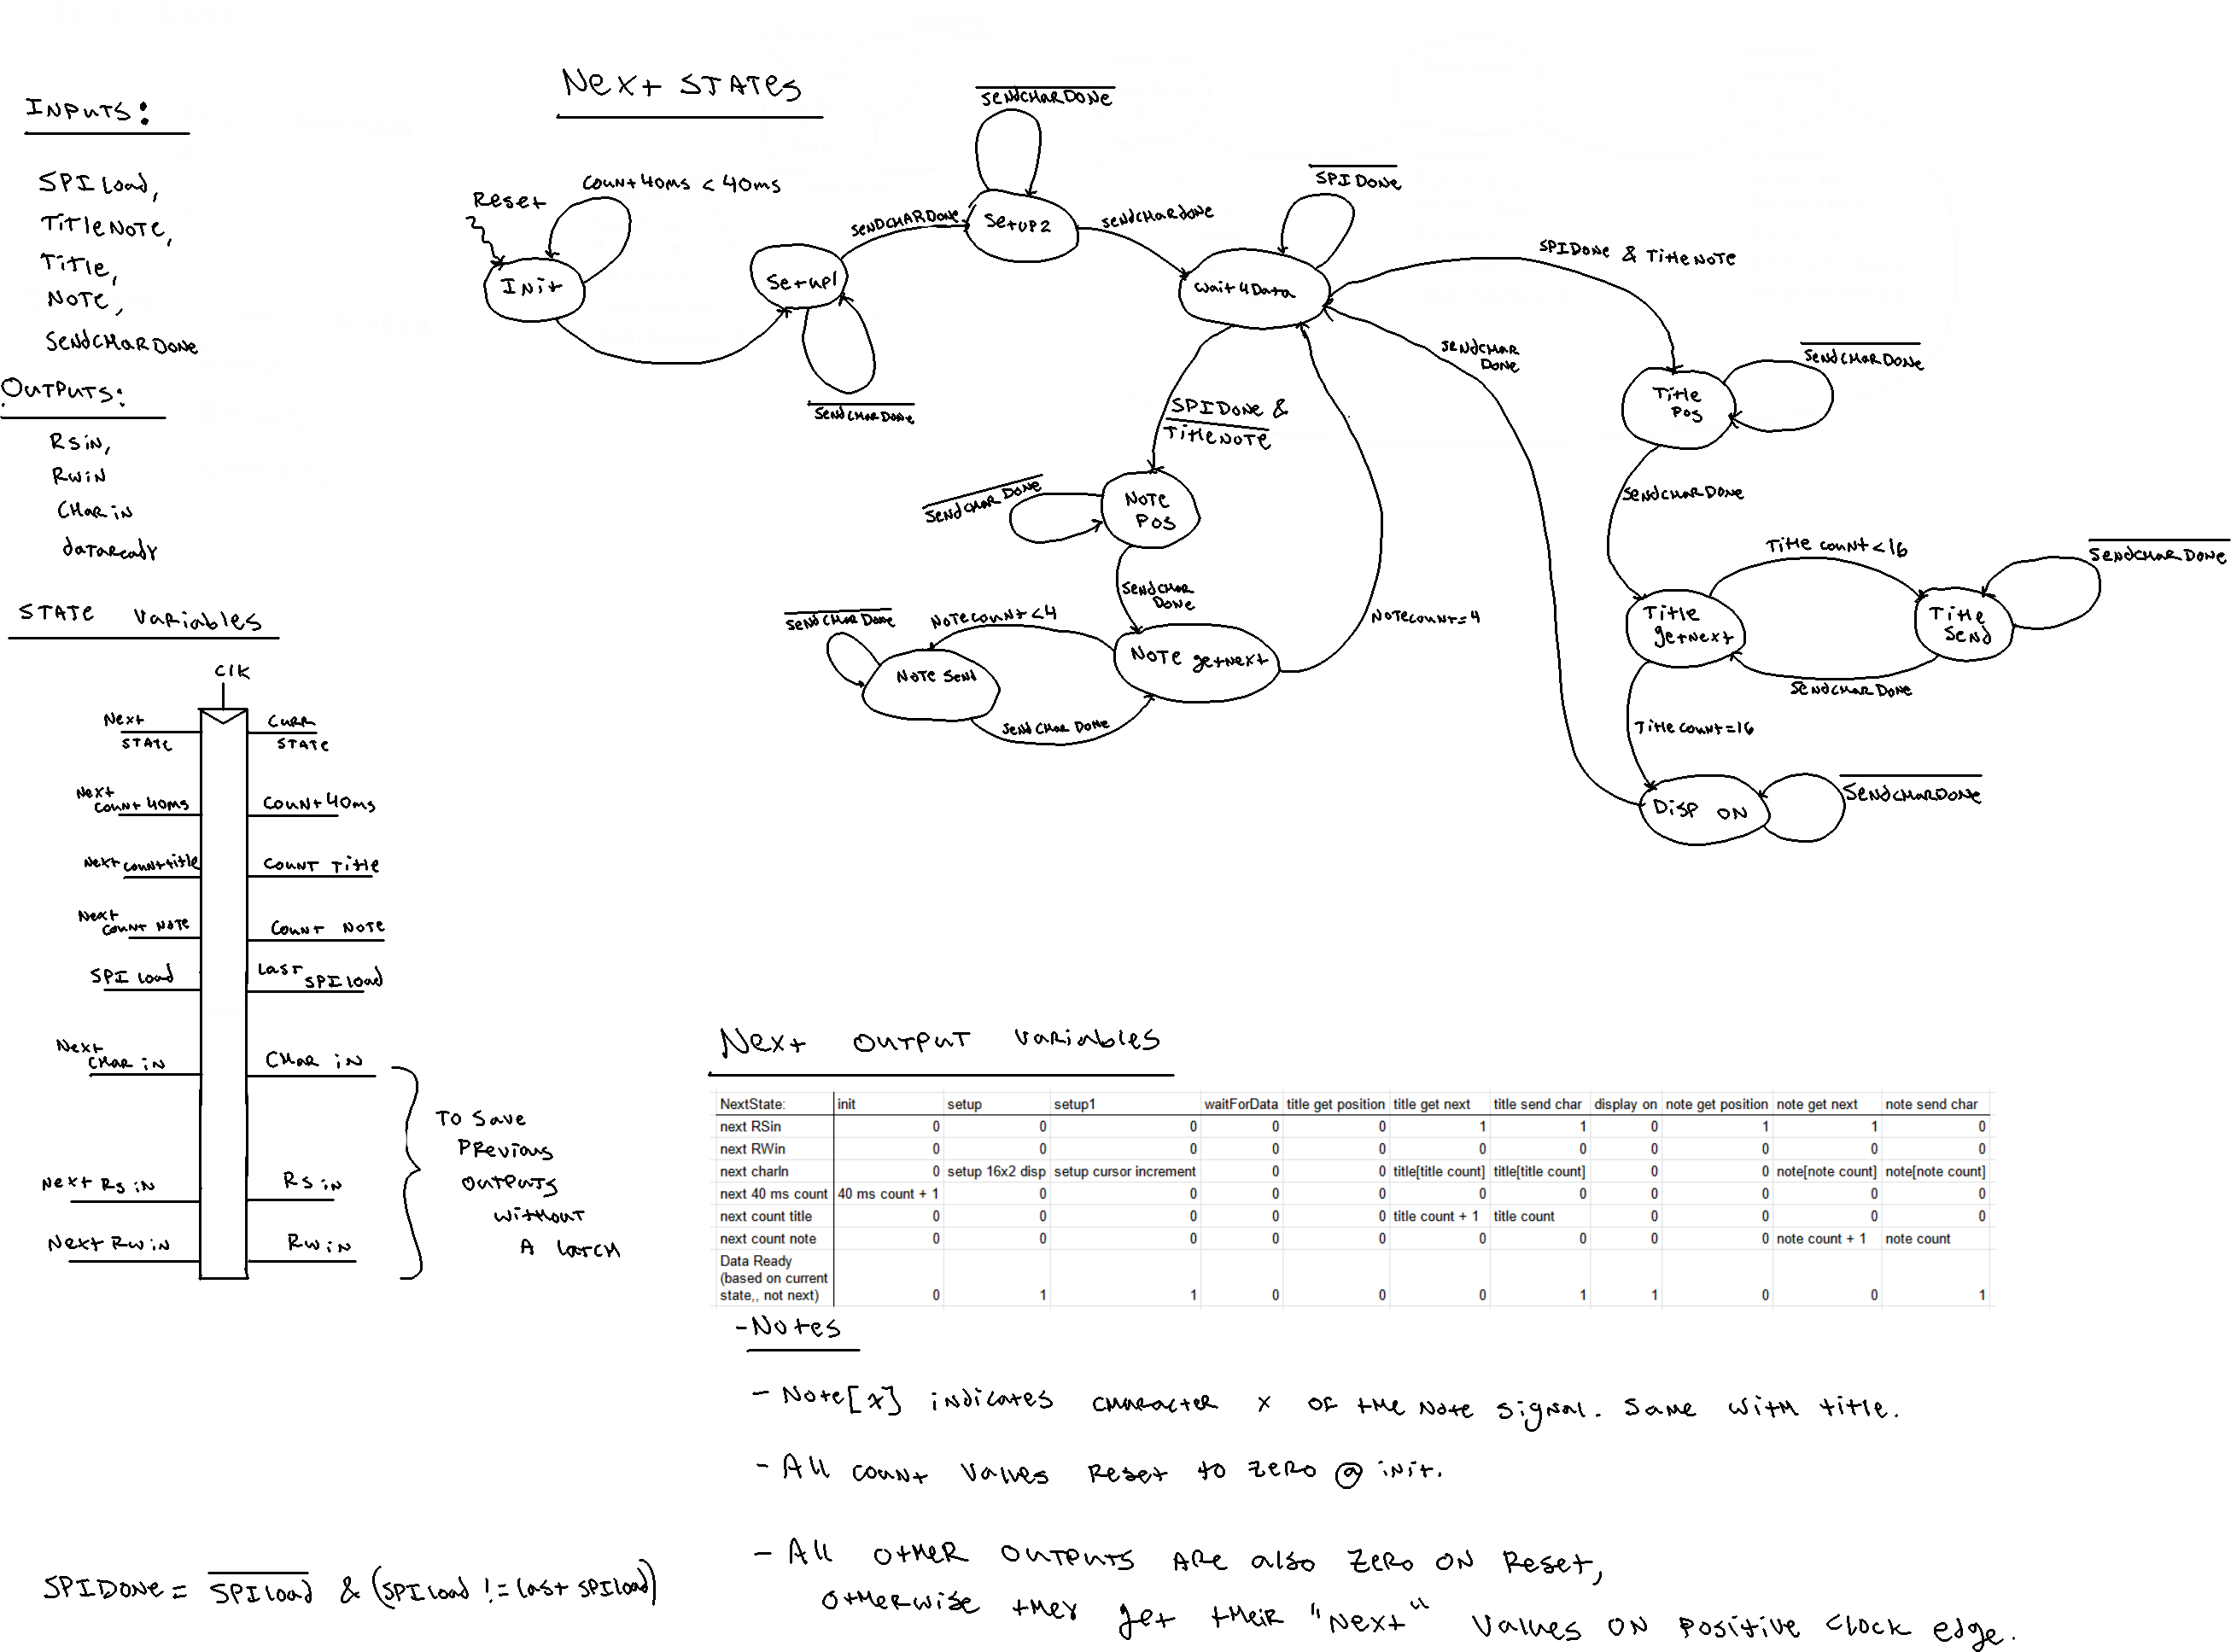 INPUTS:
SPI load,
TiTleNOTE,
Title,
NOTE,
SENdCHARDONE
OUTPUTS:
RSiN,
RWiN
CHAR iN
dATAReadY
STATE Variables
Clk
Next STATE
CURR STATE
Next Count 40ms
Count 40ms
Next Count title
Count Title
Next Count Note
Count Note
SPI load
LAST SPI load
Next CHar iN
CHar iN
Next Rs iN
Rs iN
Next RwiN
RwiN
To Save
Previous
outputs
without
A latch
SPIDONE = SPIload & (SPI load != last SPIload)
Next STATES
Reset
Count 40ms < 40ms
INit
Setup1
SENDCHARDONE
SENDCHARDONE
Setup2
SENDCHARDONE
SENDCHARDONE
wait4Data
SPIDONE
SPIDONE & TitleNOTE
SPIDONE &
TitleNOTE
Note
Pos
SENDCHARDONE
SENDCHAR
DONE
Note getNext
NOTECOUNT<4
NOTECOUNT=4
Note Send
SENDCHARDONE
SENDCHARDONE
Title
Pos
SENDCHARDONE
SENDCHARDONE
Title
getNext
Title count<16
Title
Send
SENDCHARDONE
SENDCHARDONE
Title count=16
Disp ON
SENDCHARDONE
SENDCHAR
DONE
Next Output Variables
NextState: init setup setup1 waitForData title get position title get next title send char display on note get position note get next note send char
next RSin 0 0 0 0 0 1 1 0 1 1 0
next RWin 0 0 0 0 0 0 0 0 0 0 0
next charIn 0 setup 16x2 disp setup cursor increment 0 0 title[title count] title[title count] 0 0 note[note count] note[note count]
next 40 ms count 40 ms count + 1 0 0 0 0 0 0 0 0 0 0
next count title 0 0 0 0 0 title count + 1 title count 0 0 0 0
next count note 0 0 0 0 0 0 0 0 0 note count + 1 note count
Data Ready
(based on current
state,, not next) 0 1 1 0 0 0 1 1 0 0 1
-Notes
- Note[x] indicates character x of the Note signal. Same with title.
- All count values Reset to zero @ init.
- All other outputs are also zero on Reset,
otherwise they get their "Next" values on positive clock edge.